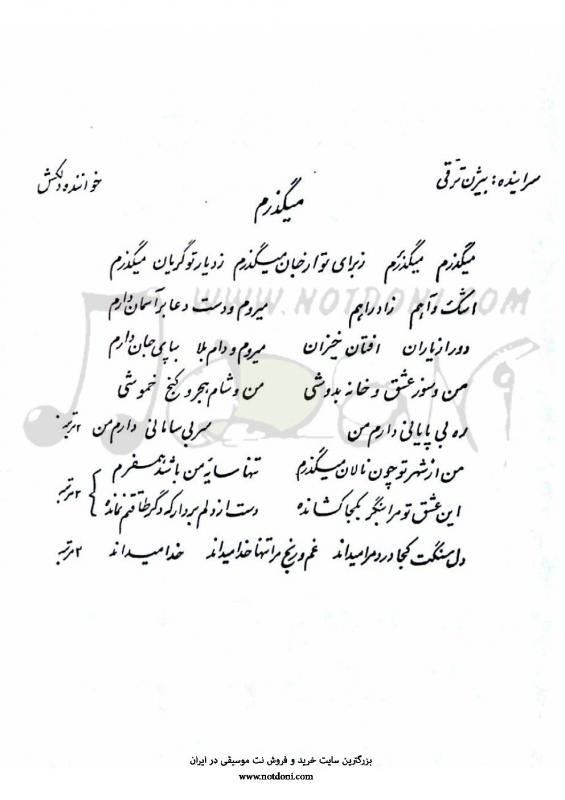 سراینده: بیژن ترقی
خواننده دلکش
میگذرم
میگذرم میگذرم زبرای تو از جان میگذرم ز دیار تو گریان میگذرم
WWW.NOTDONI.COM
اشک و آهم زاد راهم میروم و دست دعا بر آسمان دارم
دور از یاران افتان خیزان میروم و دام بلا بپای جان دارم
من و سوز عشق و خانه بدوشی من و شام هجر و کنج خموشی
ره بی پایانی دارم من سر بی سامانی دارم من ۲ مرتبه
من از شهر تو چون نالان میگذرم تنها سایه من باشد همسفرم
این عشق تو مرا بنگر بکجا کشانده دست از دلم بردار که دگر طاقتم نمانده ۲ مرتبه
دل سنگت کجا درد مرا میداند غم و رنج مرا تنها خدا میداند خدا میداند ۲ مرتبه
بزرگترین سایت خرید و فروش نت موسیقی در ایران
www.notdoni.com